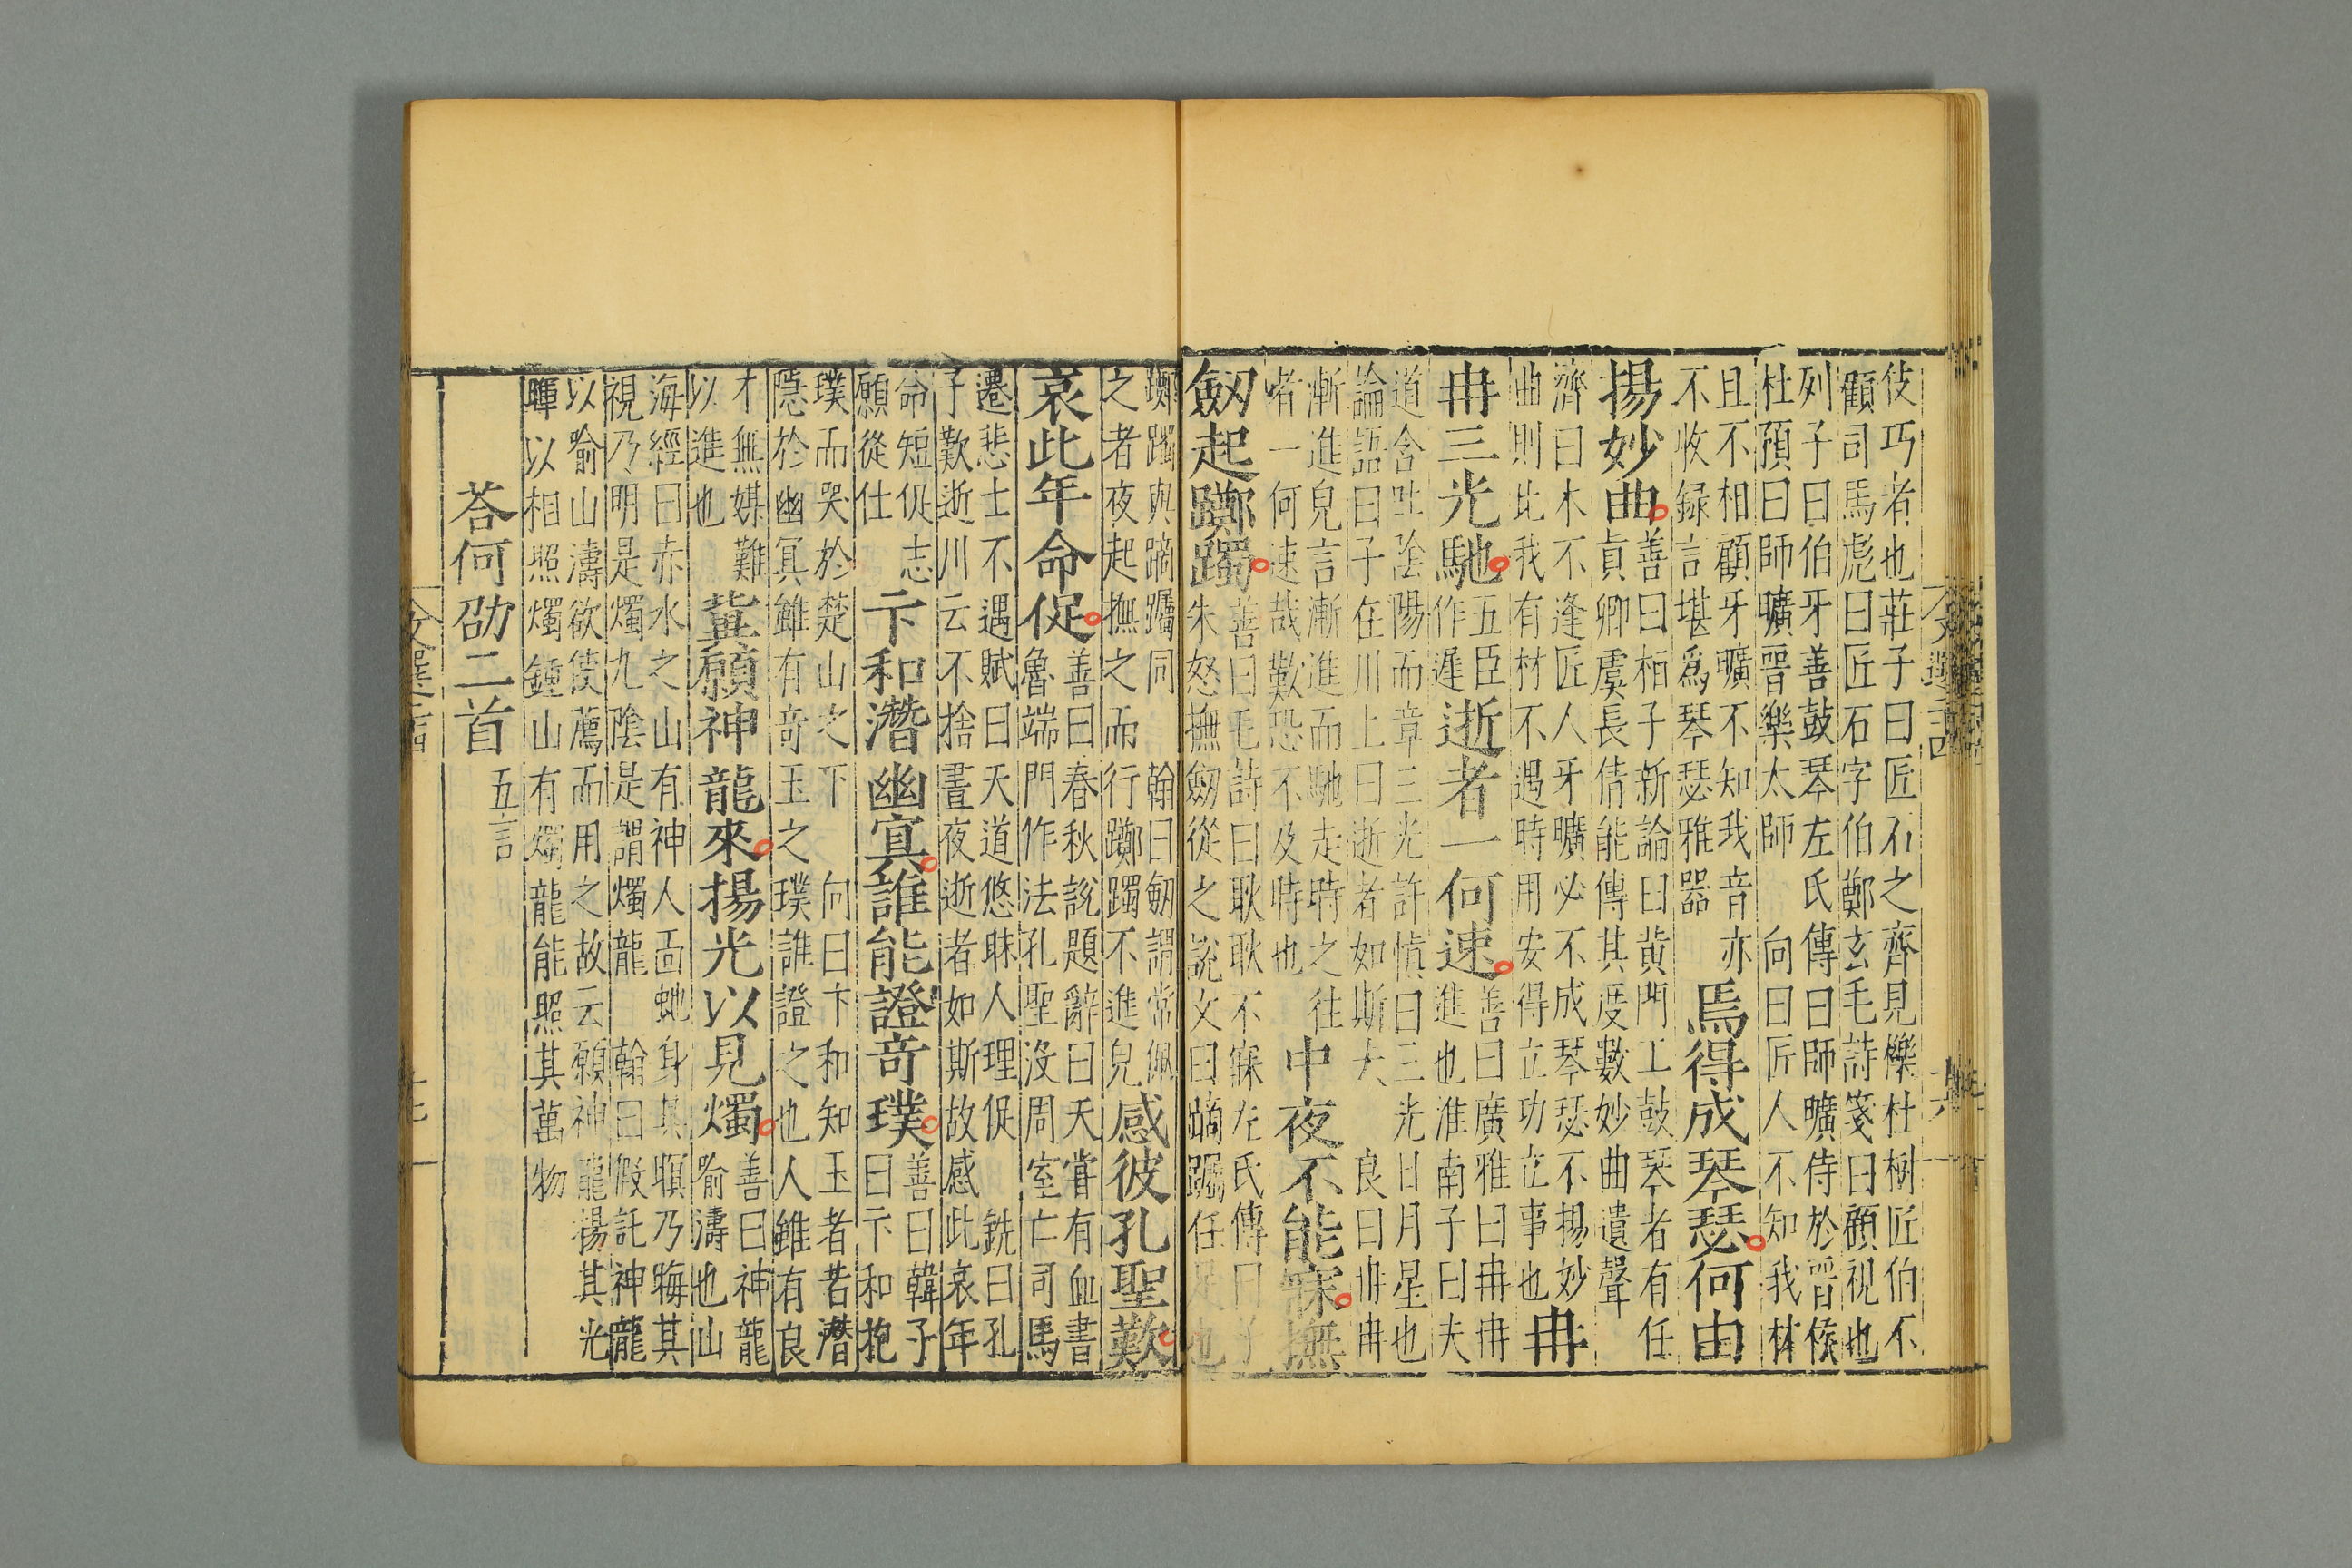 伎巧者也莊子曰匠石之齊見櫟杜樹匠伯不
顧司馬彪曰匠石字伯鄭玄毛詩箋曰顧視也
列子曰伯牙善鼓琴左氏傳曰師曠侍於晉侯
杜預曰師曠晉樂太師 向曰匠人不知我林
且不相顧牙曠不知我音亦
不收録言堪爲琴瑟雅器
焉得成琴瑟何由
揚妙曲
善曰栢子新論曰黄門工鼓琴者有任
貞卿虞長倩能傳其度數妙曲遺聲
濟曰木不逢匠人牙曠必不成琴瑟不揚妙
曲則比我有材不遇時用安得立功立事也
冉
冉三光馳
五臣
作遅
逝者一何速
善曰廣雅曰冉冉
進也淮南子曰夫
道含吐陰陽而章三光許慎曰三光日月星也
論語曰子在川上曰逝者如斯夫 良曰冉冉
漸進皃言漸進而馳走時之往
者一何速哉歎恐不及時也
中夜不能寐撫
劒起躑躅
善曰毛詩曰耿耿不寐左氏傳曰子
朱怒撫劒從之説文曰蹢躅住足也
躑躅與蹢躅同 翰曰劒謂常佩
之者夜起撫之而行躑躅不進皃
感彼孔聖歎
哀此年命促
善曰春秋說題辭曰天甞有血書
魯端門作法孔聖没周室亡司馬
遷悲士不遇賦曰天道悠昧人理促 銑曰孔
子歎逝川云不捨晝夜逝者如斯故感此哀年
命短促志
願從仕
卞和潛幽㝠誰能證竒璞
善曰韓子
曰卞和抱
璞而哭於楚山之下 向曰卞和知玉者若潜
隱於幽㝠雖有竒玉之璞誰證之也人雖有良
才無媒難
以進也
冀願神龍來揚光以見燭
善曰神龍
喻濤也山
海經曰赤水之山有神人面虵身其瞑乃晦其
視乃明是燭九陰是謂燭龍 翰曰假託神龍
以喻山濤欲使薦而用之故云願神龍揚其光
暉以相照燭鍾山有燭龍能照其萬物
荅何劭二首
五言